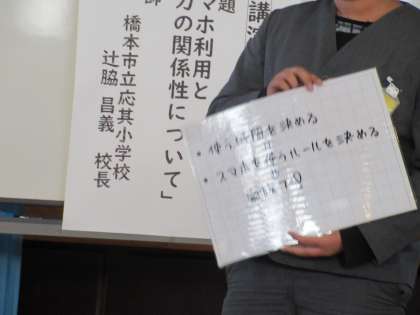 講演
題
マホ利用と
力の関係性について」
師
橋本市立応其小学校
辻脇 昌義 校長
* 使う時間を決める
* スマホを使うルールを決める